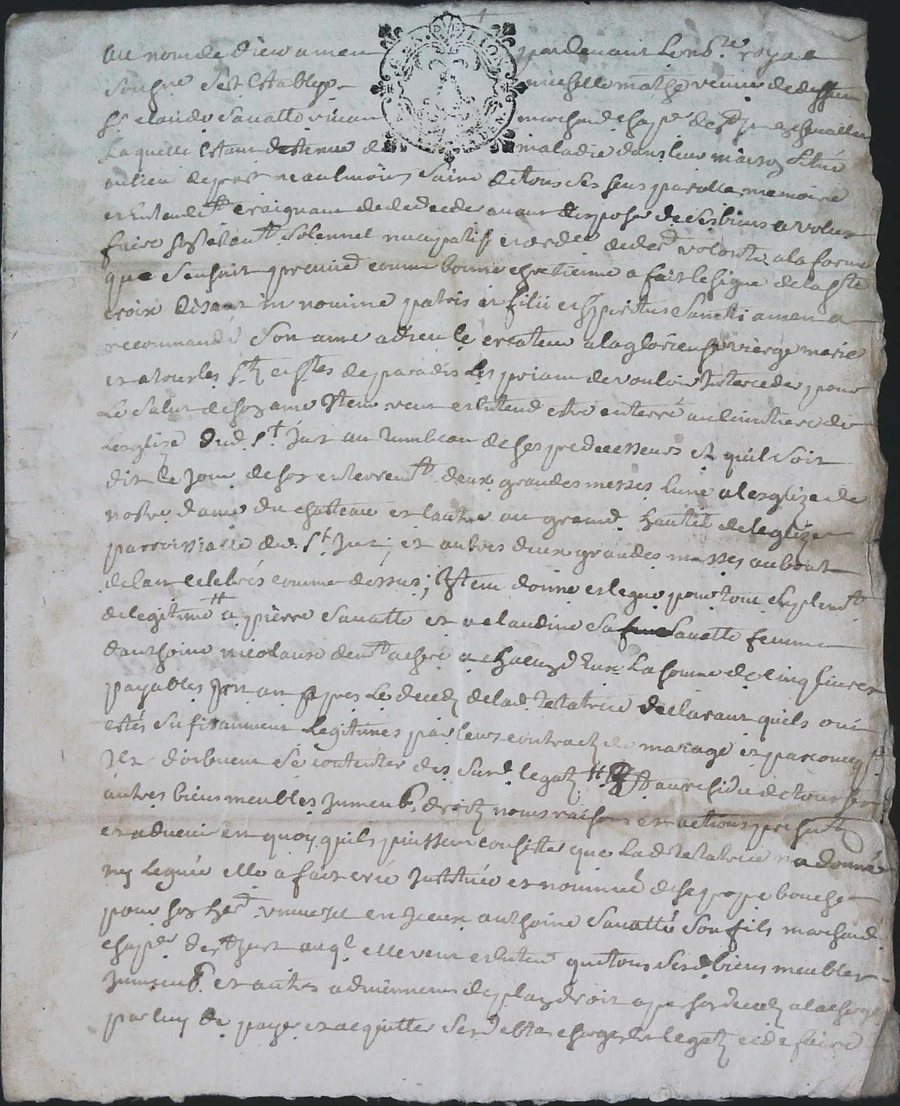 au nom de dieu amen pardevant le no.re royal
soubsigné s'est establye michelle mathe veuve de deffun
s.r claude Sauatte vivan marchand chap.r de s.t just
Laquelle estant detenue de maladie dans leur maison situé
au lieu de neaulmoins saine de tous ses sens parolle memoire
et entendem.t craignant de deceder avant disposer de ses biens a voleu
faire son testam.t solennel nuncupatif et ordre de der.e volonté a la forme
que sensuit premier.t comme bonne chretienne a fait le signe de la s.te
croix disant in nomine patris et filii et spiritus sancti amen a
recommandé son ame a dieu le createur a la glorieuse vierge marie
et a tous les s.ts et s.tes de paradis les priant de vouloir interceder pour
le salut de son ame Item veut et entend estre enterré au cimetiere de
lesglize dud. s.t Just au tumbeau de ses predecesseurs et quil soit
dit le jour de son enterrem.t deux grandes messes lune a lesglize de
nostre dame du chasteau et lautre au grand hautel de leglize
parroissialle dud. s.t Just; et autres deux grandes messes au bout
de lan celebrés comme dessus; Item donne et legue pour tout
de legitime a pierre Sauatte et a claudine Sauatte femme
danthoine nicolaux a chacung deux la somme de cinq livres
payables un an apres le decedz de lad. testatrice declarant quils ont
estés sufisamment legitimes par leurs contractz de mariage et par
Ilz doibvent se contenter des sus.d legatz et au residu de tous ses
autres biens meubles Immeub. droitz noms raisons et actions presentz
et advenir en quoy quils puissent consister que lad. testatrice n'a donné
ny legué elle a fait creé Institué et nommé de sa propre bouche
pour son her. universel anthoine Sauatte son fils marchand
chap.r de s.t Just auq.l elle veut et entend que tous ses d. biens meubles
Immeub. et autres adviennent de plain droit apres son decedz a la charge
par luy de payer et acquitter ses debtes charges et legatz et de faire